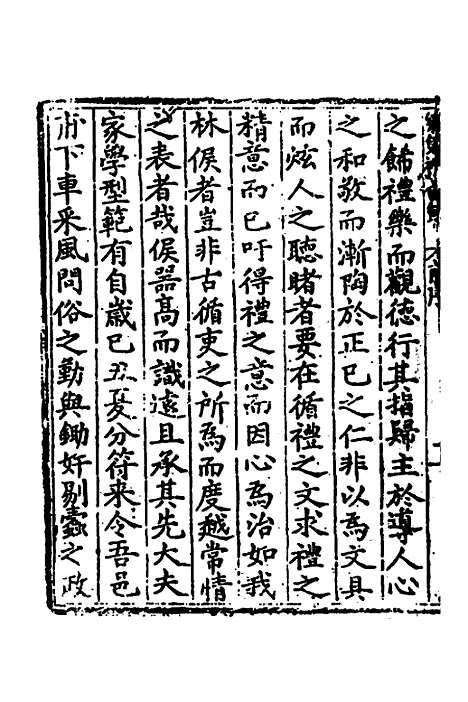 之飾禮樂而觀德行其指歸主於導人心
之和敬而漸陶於正已之仁非以為文具
而炫人之聽睹者要在循禮之文求禮之
精意而已吁得禮之意而因心為治如我
林侯者豈非古循吏之所為而度越常情
之表者哉侯器高而識遠且承其先大夫
家學型範有自歲已丑夏分符來令吾邑
甫下車采風問俗之勤與鋤奸剔蠹之政